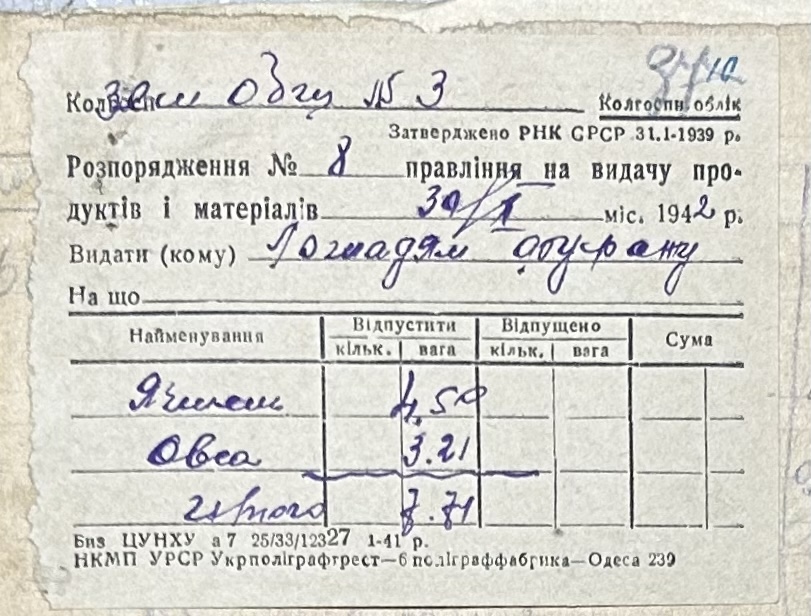 Колгосп Зем Обгу № 3
Колгоспн. облік
Затверджено РНК СРСР 31.1-1939 р.
Розпорядження № 8 правління на видачу про-
дуктів і матеріалів 30/X міс. 1942 р.
Видати (кому) Лошадям фуражу
На що
Найменування Відпустити Відпущено Сума
кільк. вага кільк. вага
Ячменю 4.50
Овса 3.21
7.71
Биз ЦУНХУ а7 25/33/12327 1-41 р.
НКМП УРСР Укрполіграфтрест—6 поліграффабрика—Одеса 239